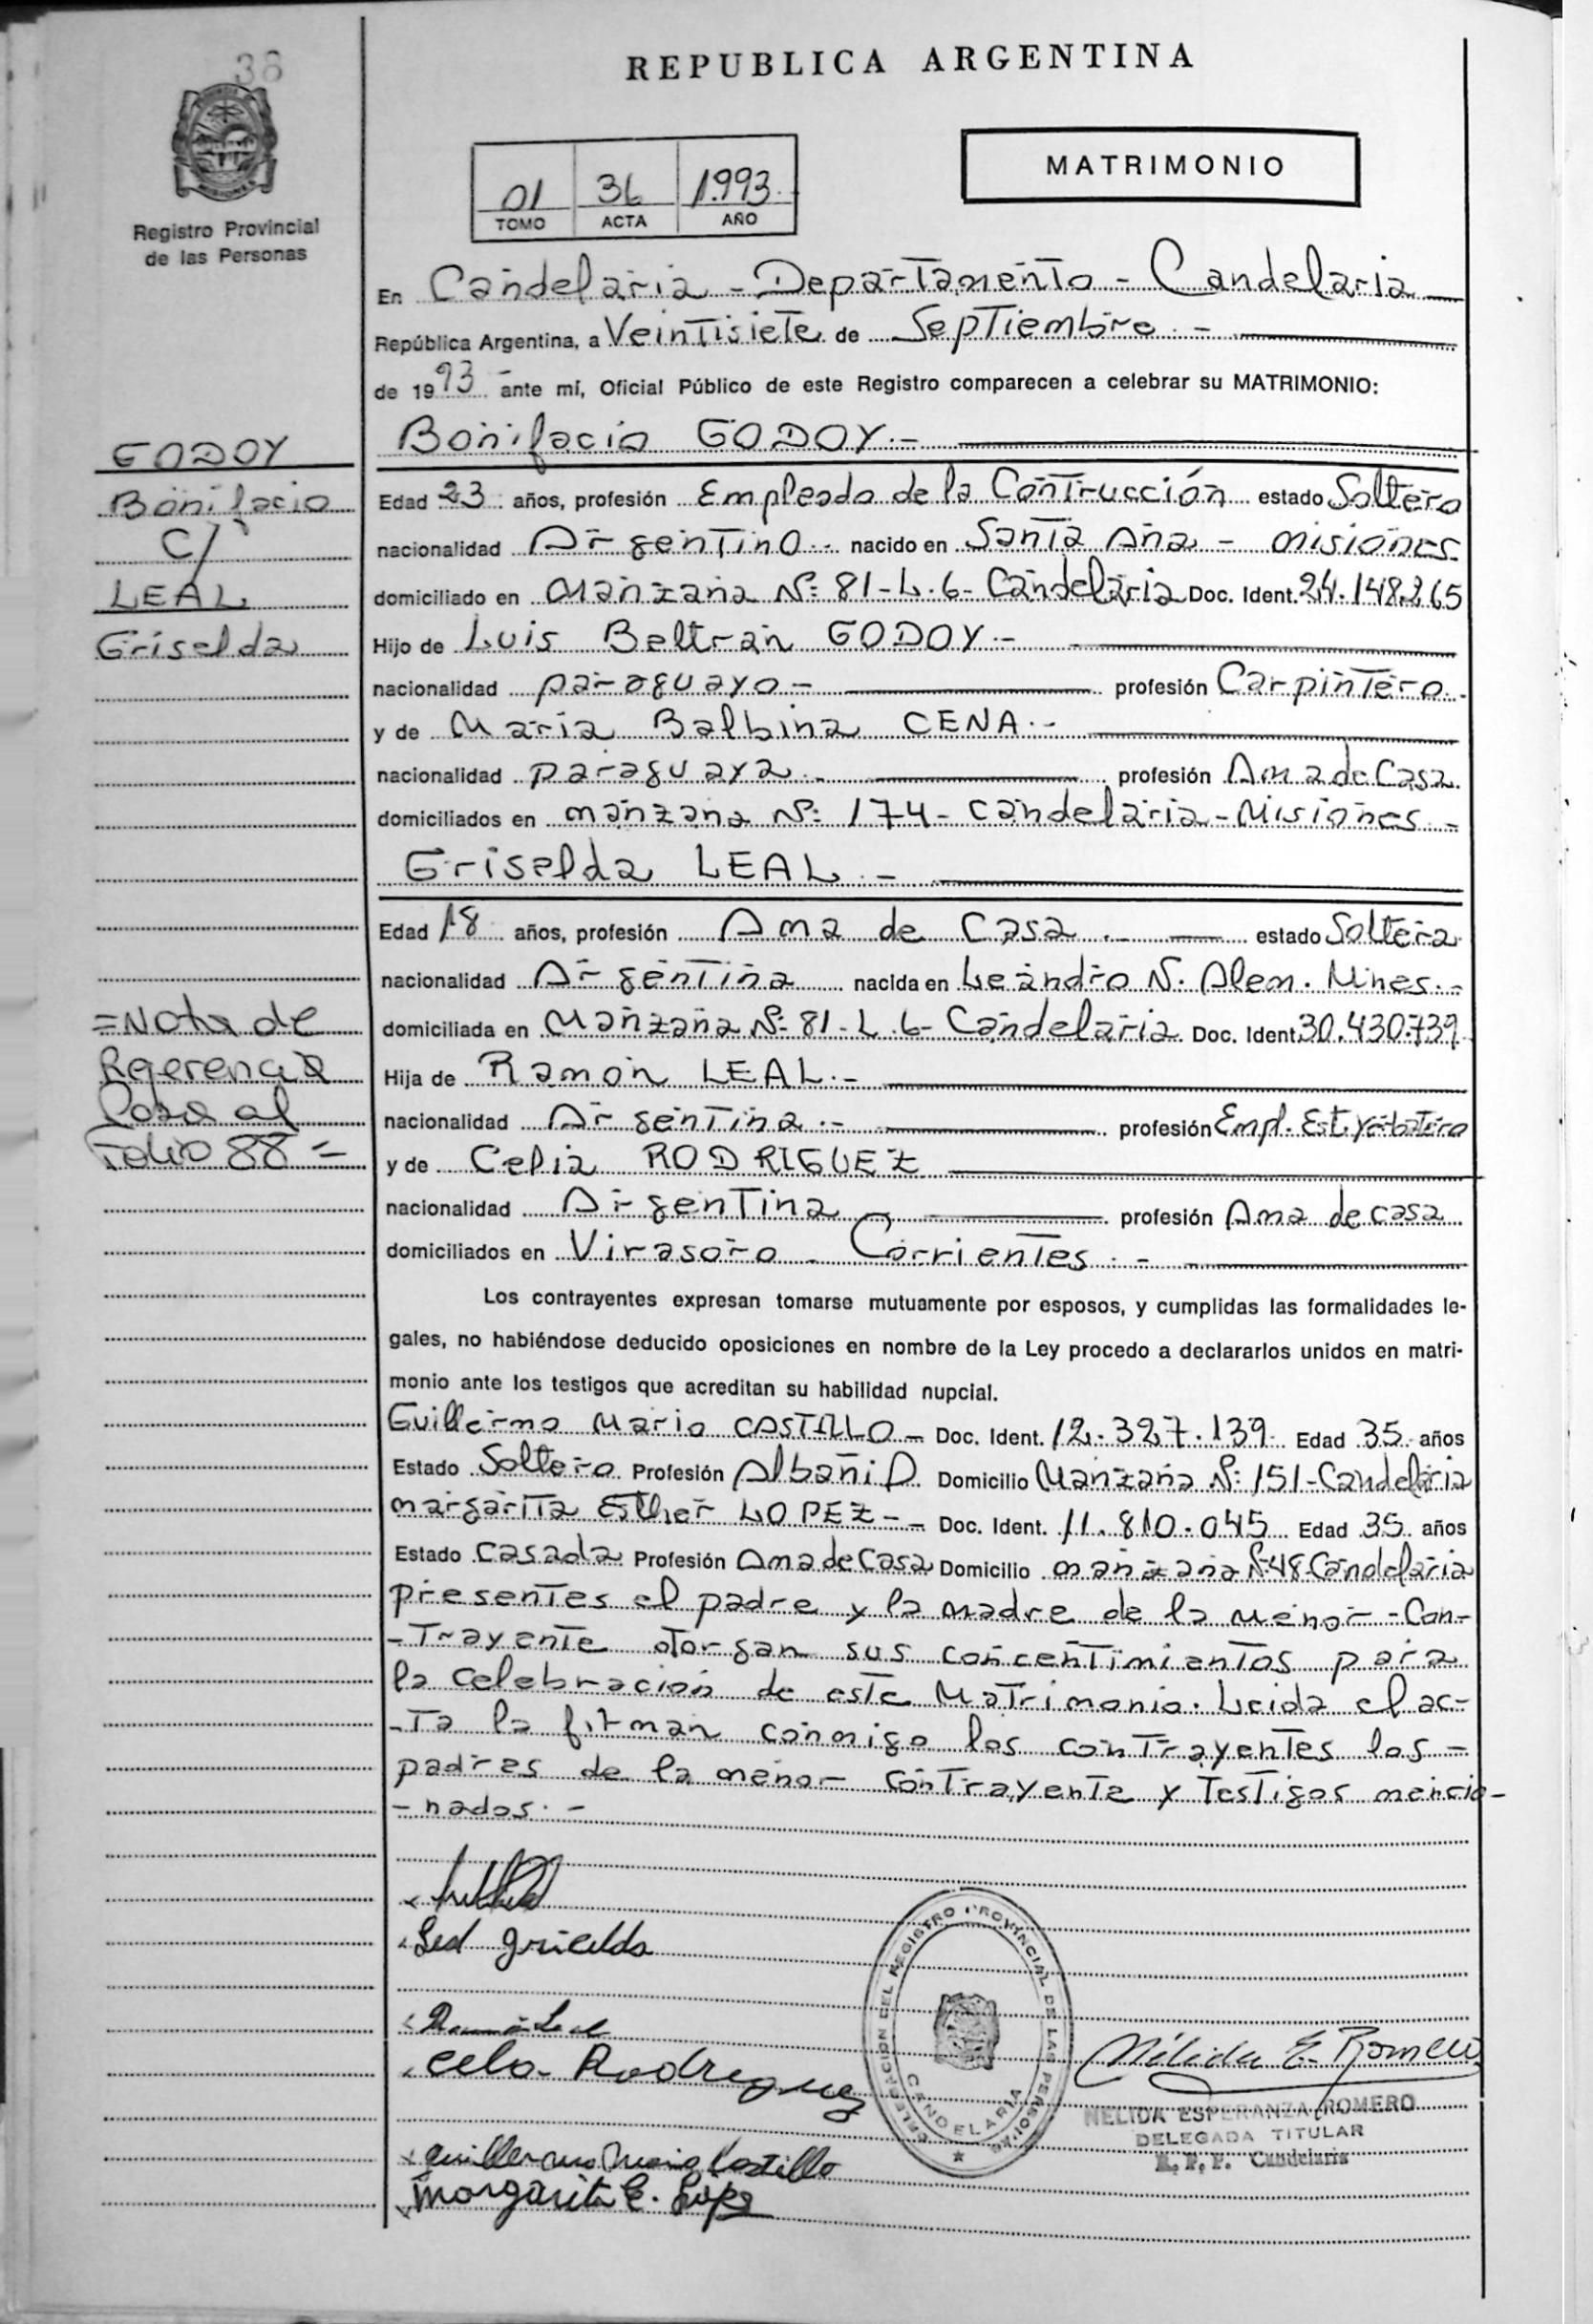 36
REPUBLICA ARGENTINA
MATRIMONIO
01 36 1.993.
TOMO ACTA AÑO
Registro Provincial
de las Personas
En Candelaria - Departamento - Candelaria
República Argentina, a Veintisiete de Septiembre.-
de 1993 ante mí, Oficial Público de este Registro comparecen a celebrar su MATRIMONIO:
Bonifacio GODOY.-
GODOY
Bonifacio
C/
LEAL
Griselda
Edad 23 años, profesión Empleado de la Contrucción estado Soltero
nacionalidad Argentino.. nacido en Santa Ana - Misiones.
domiciliado en Manzana Nº: 81-L.6- Candelaria Doc. Ident. 24.148.265
Hijo de Luis Beltran GODOY.-
nacionalidad paraguayo- profesión Carpintero.
y de Maria Balbina CENA.-
nacionalidad paraguaya.- profesión Ama de Casa.
domiciliados en manzana Nº: 174- Candelaria-Misiones.-
Griselda LEAL.-
Edad 18 años, profesión Ama de Casa.- estado Soltera.
nacionalidad Argentina nacida en Leandro N. Alem. Mnes.-
domiciliada en Manzana Nº: 81-L.6- Candelaria. Doc. Ident. 30.430.739
Hija de Ramon LEAL.-
nacionalidad Argentina.- profesión Empl. Est. Yerbatero
y de Celia RODRIGUEZ
nacionalidad Argentina profesión Ama de casa
domiciliados en Virasoro - Corrientes.-
=Nota de
Rgerencia
Pasa al
Folio 88=
Los contrayentes expresan tomarse mutuamente por esposos, y cumplidas las formalidades le-
gales, no habiéndose deducido oposiciones en nombre de la Ley procedo a declararlos unidos en matri-
monio ante los testigos que acreditan su habilidad nupcial.
Guillermo Mario CASTILLO- Doc. Ident. 12.327.139 Edad 35 años
Estado Soltero Profesión Albañil Domicilio Manzana Nº: 151-Candelaria
margarita Esther LOPEZ-- Doc. Ident. 11.810.045 Edad 35 años
Estado Casada Profesión Ama de Casa Domicilio manzana Nº48 Candelaria
presentes el padre y la madre de la menor -Con-
-Trayente otorgan sus concentimientos para
la celebración de este Matrimonio. Leida el ac-
-Ta la firman conmigo los contrayentes los -
padres de la menor contrayente y Testigos mencio-
-nados.-
Leal Griselda
Ramón Leal
Celia Rodriguez
Guillermo Mario Castillo
Margarita E. Lopez
DELEGACION DEL REGISTRO PROVINCIAL DE LAS PERSONAS
CANDELARIA
Nélida E. Romero
NELIDA ESPERANZA ROMERO
DELEGADA TITULAR
R. P. P. Candelaria